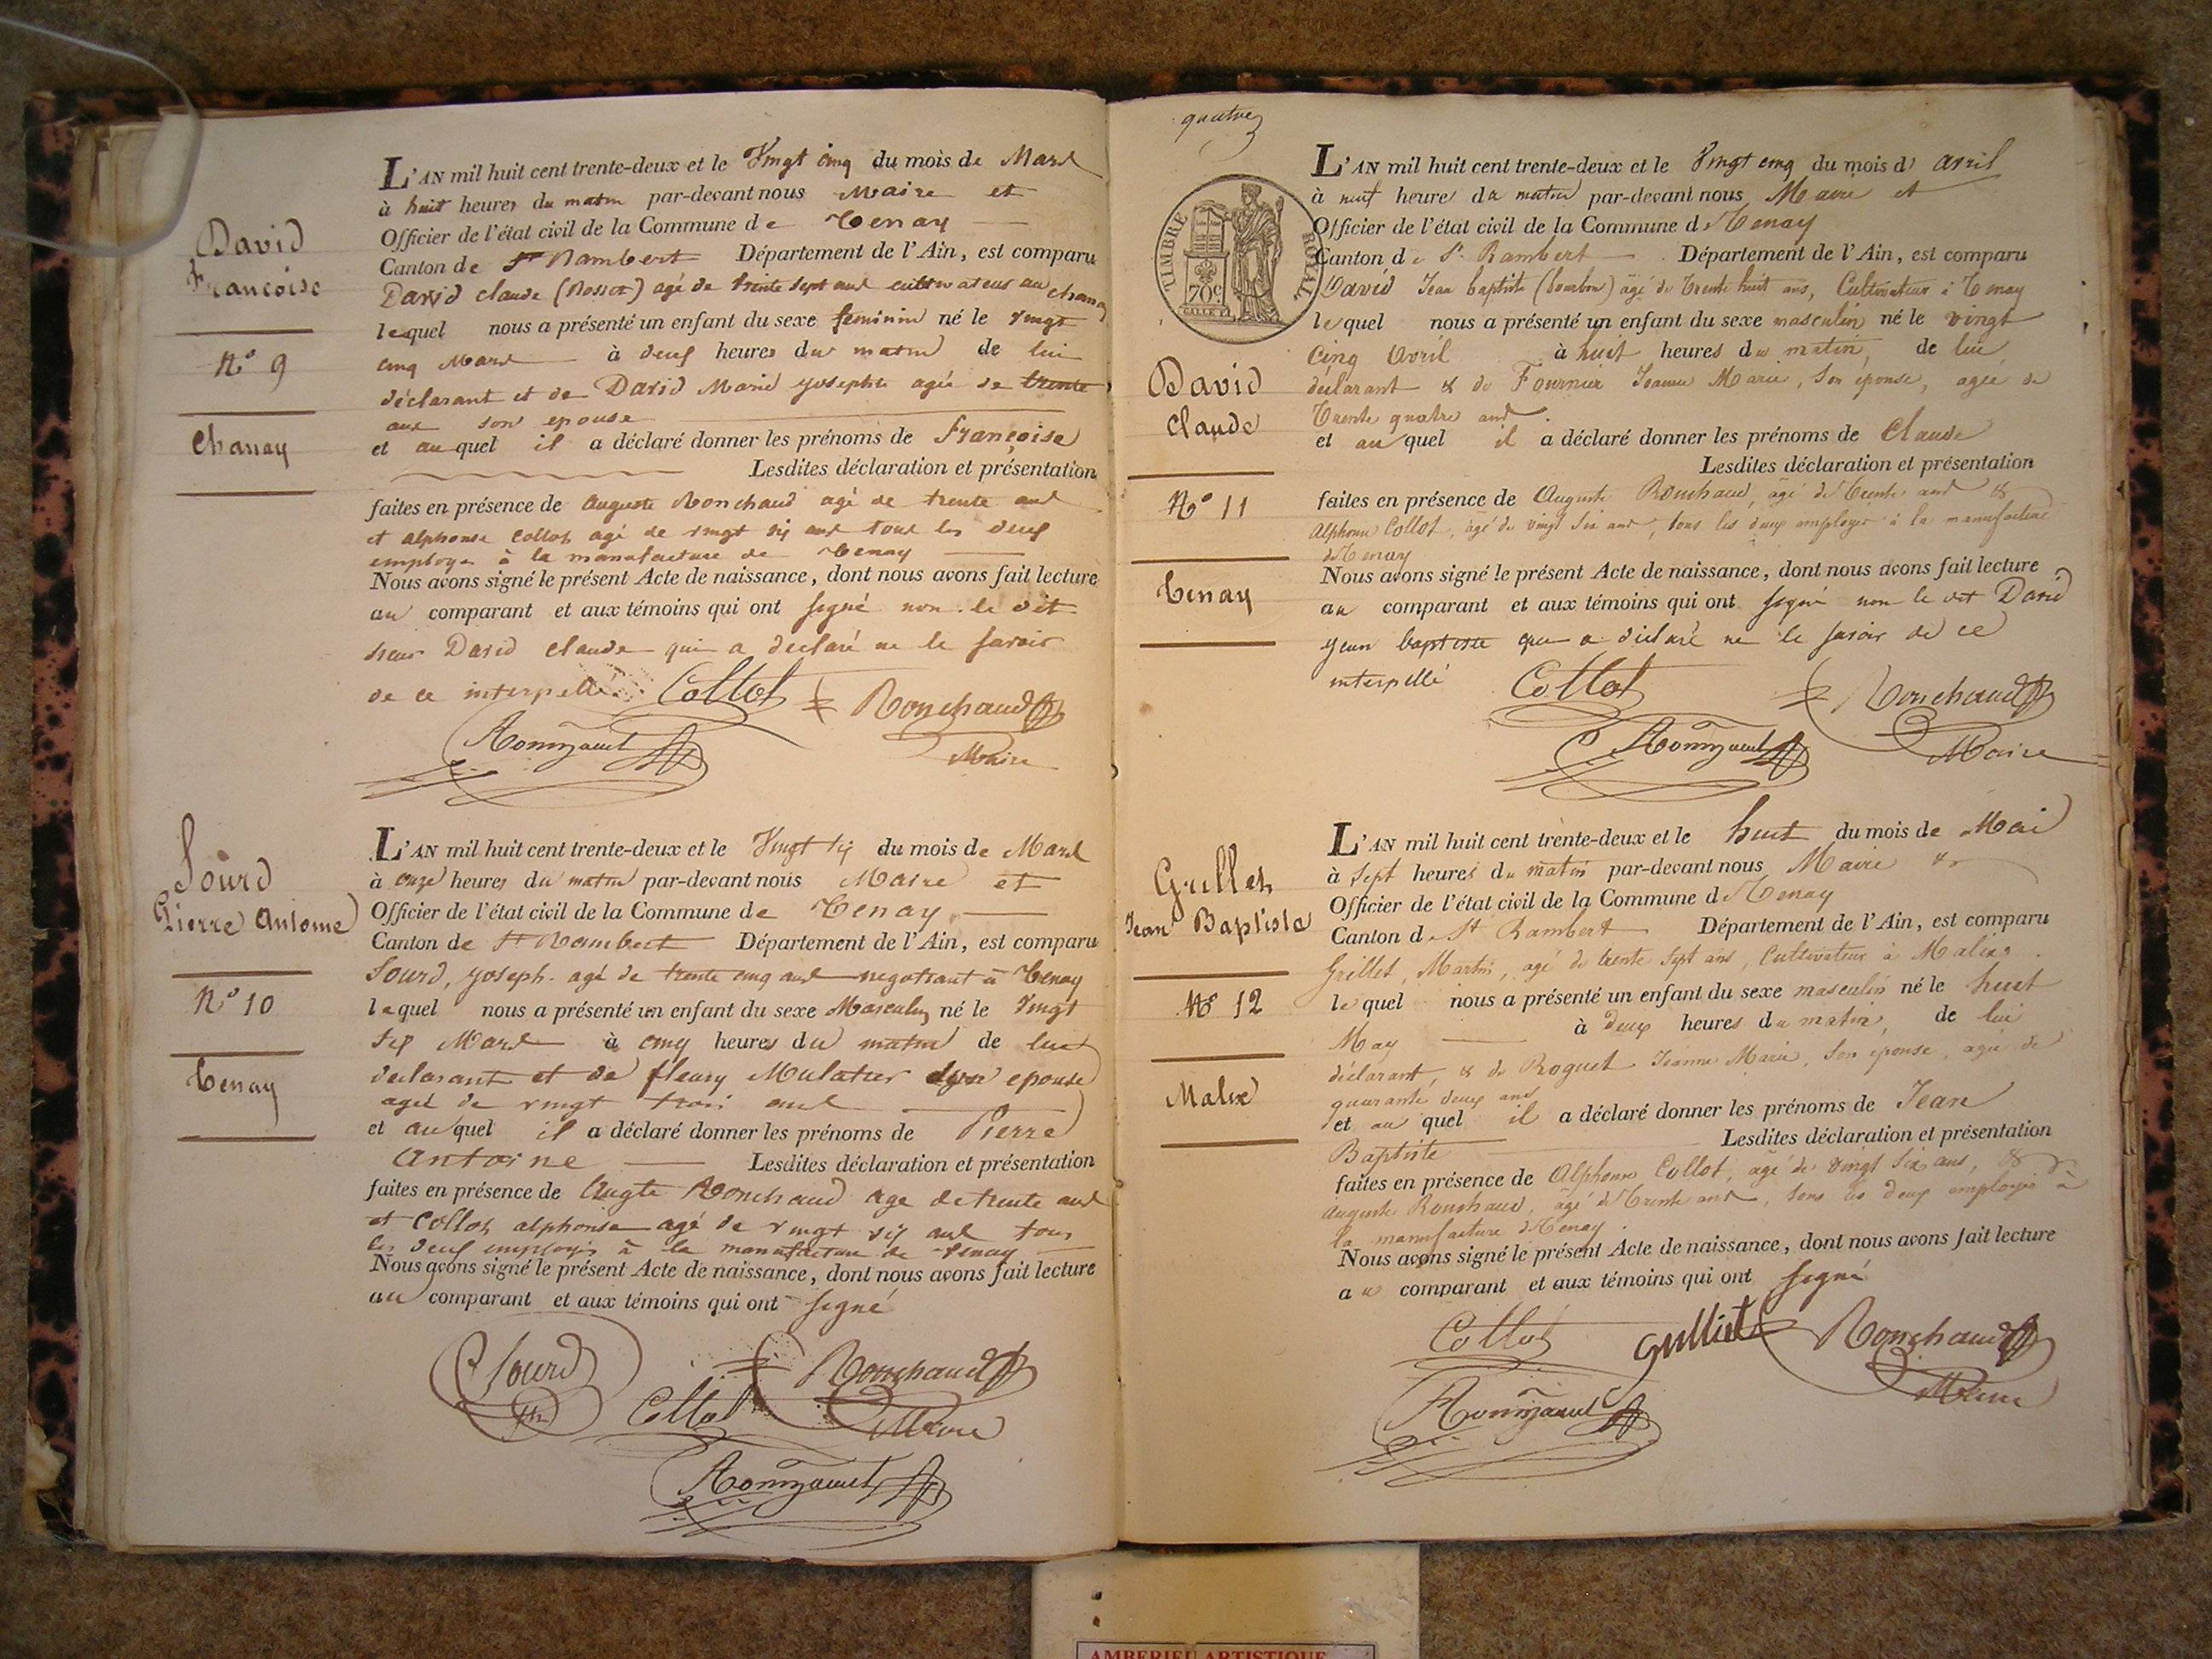 David
Francoise
N° 9
Chanay
L'AN mil huit cent trente-deux et le Vingt cinq du mois de Mars
à huit heures du matin par-devant nous Maire et
Officier de l'état civil de la Commune de Tenay
Canton de St Rambert Département de l'Ain, est comparu
David claude (Rosset) agé de trente sept ans cultivateur au chanay
lequel nous a présenté un enfant du sexe feminin né le vingt
cinq Mars à deux heures du matin de lui
déclarant et de David Marie josephte agée de trente
ans son epouse
et au quel il a déclaré donner les prénoms de françoise
Lesdites déclaration et présentation
faites en présence de auguste Ronchaud agé de trente ans
et alphonse Collot agé de vingt six ans tous les deux
employés à la manufacture de Tenay
Nous avons signé le présent Acte de naissance, dont nous avons fait lecture
au comparant et aux témoins qui ont signé non le dit
sieur David claude qui a declaré ne le savoir
de ce interpellé. Collot Ronchaud
Maire
Sourd
Pierre Antoine
N° 10
Tenay
L'AN mil huit cent trente-deux et le Vingt six du mois de Mars
à onze heures du matin par-devant nous Maire et
Officier de l'état civil de la Commune de Tenay
Canton de St Rambert Département de l'Ain, est comparu
Sourd, joseph agé de trente cinq ans negotiant à Tenay
lequel nous a présenté un enfant du sexe Masculin né le Vingt
six Mars à cinq heures du matin de lui
declarant et de fleury Mulatier son epouse
agée de vingt trois ans
et au quel il a déclaré donner les prénoms de Pierre
Antoine Lesdites déclaration et présentation
faites en présence de Augte Ronchaud age de trente ans
et Collot alphonse agé de vingt six ans tous
les deux employés à la manufacture de Tenay
Nous avons signé le présent Acte de naissance, dont nous avons fait lecture
au comparant et aux témoins qui ont signé
Sourd Ronchaud
Collot Maire
quatre
TIMBRE ROYAL
70c
David
Claude
N° 11
Tenay
L'AN mil huit cent trente-deux et le Vingt cinq du mois d' avril
à neuf heures du matin par-devant nous Maire et
Officier de l'état civil de la Commune de Tenay
Canton de St Rambert Département de l'Ain, est comparu
David Jean baptiste (bourbon) agé de Trente huit ans, Cultivateur à Tenay
lequel nous a présenté un enfant du sexe masculin né le vingt
Cinq Avril à huit heures du matin, de lui
déclarant & de Fournier Jeanne Marie, Son épouse, agée de
Trente quatre ans.
et au quel il a déclaré donner les prénoms de Claude
Lesdites déclaration et présentation
faites en présence de Auguste Ronchaud, âgé de Trente ans &
Alphonse Collot, âgé de vingt Six ans, tous les deux employés à la manufacture
de Tenay
Nous avons signé le présent Acte de naissance, dont nous avons fait lecture
au comparant et aux témoins qui ont signé non le dit David
jean baptiste qui a déclaré ne le savoir de ce
interpellé Collot Ronchaud
Maire
Grillet
Jean Baptiste
N° 12
Malix
L'AN mil huit cent trente-deux et le huit du mois de Mai
à Sept heures du matin par-devant nous Maire &
Officier de l'état civil de la Commune de Tenay
Canton de St Rambert Département de l'Ain, est comparu
Grillet, Martin, agé de trente Sept ans, Cultivateur à Malix
lequel nous a présenté un enfant du sexe masculin né le huit
May à deux heures du matin, de lui
déclarant, & de Roguet Jeanne Marie, Son épouse, agée de
quarante deux ans
et au quel il a déclaré donner les prénoms de Jean
Baptiste Lesdites déclaration et présentation
faites en présence de Alphonse Collot, agé de vingt Six ans, &
Auguste Ronchaud, âgé de Trente ans, tous les deux employés à
la manufacture de Tenay.
Nous avons signé le présent Acte de naissance, dont nous avons fait lecture
au comparant et aux témoins qui ont signé
Collot grilliet Ronchaud
Maire
AMBERIEU ARTISTIQUE